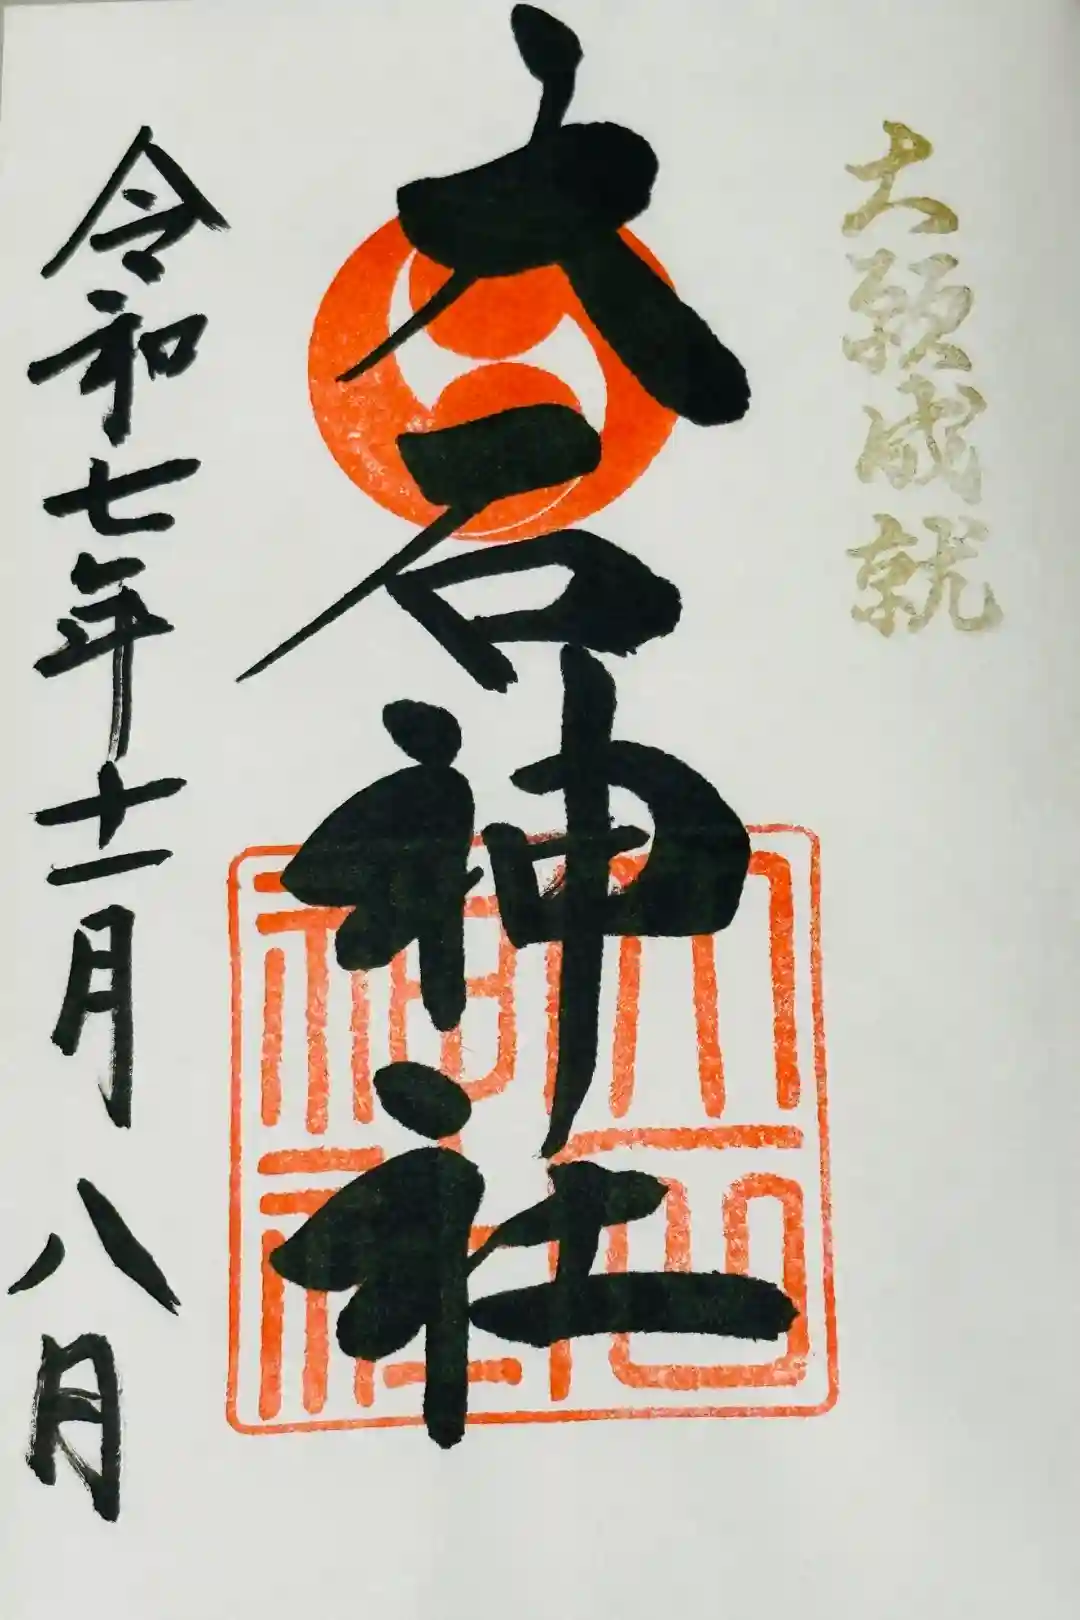 大願成就
大石神社
大石
神社
令和七年十一月八日